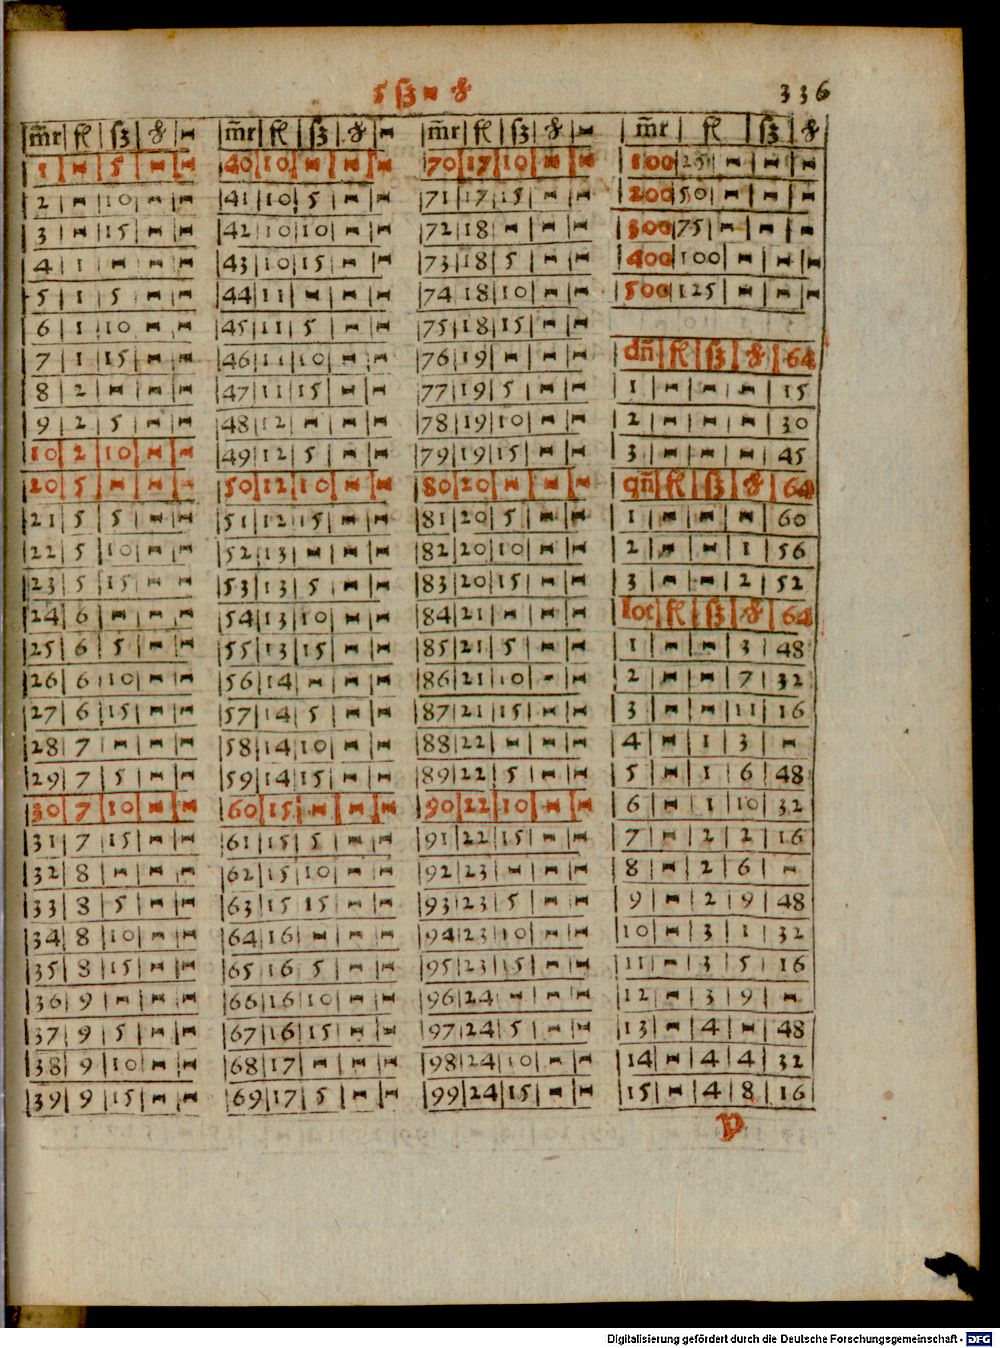 5 ſʒ - ₰
336
m̄r fl ſʒ ₰ -
1 - 5 - -
2 - 10 - -
3 - 15 - -
4 1 - - -
5 1 5 - -
6 1 10 - -
7 1 15 - -
8 2 - - -
9 2 5 - -
10 2 10 - -
20 5 - - -
21 5 5 - -
22 5 10 - -
23 5 15 - -
24 6 - - -
25 6 5 - -
26 6 10 - -
27 6 15 - -
28 7 - - -
29 7 5 - -
30 7 10 - -
31 7 15 - -
32 8 - - -
33 8 5 - -
34 8 10 - -
35 8 15 - -
36 9 - - -
37 9 5 - -
38 9 10 - -
39 9 15 - -
m̄r fl ſʒ ₰ -
40 10 - - -
41 10 5 - -
42 10 10 - -
43 10 15 - -
44 11 - - -
45 11 5 - -
46 11 10 - -
47 11 15 - -
48 12 - - -
49 12 5 - -
50 12 10 - -
51 12 15 - -
52 13 - - -
53 13 5 - -
54 13 10 - -
55 13 15 - -
56 14 - - -
57 14 5 - -
58 14 10 - -
59 14 15 - -
60 15 - - -
61 15 5 - -
62 15 10 - -
63 15 15 - -
64 16 - - -
65 16 5 - -
66 16 10 - -
67 16 15 - -
68 17 - - -
69 17 5 - -
m̄r fl ſʒ ₰ -
70 17 10 - -
71 17 15 - -
72 18 - - -
73 18 5 - -
74 18 10 - -
75 18 15 - -
76 19 - - -
77 19 5 - -
78 19 10 - -
79 19 15 - -
80 20 - - -
81 20 5 - -
82 20 10 - -
83 20 15 - -
84 21 - - -
85 21 5 - -
86 21 10 - -
87 21 15 - -
88 22 - - -
89 22 5 - -
90 22 10 - -
91 22 15 - -
92 23 - - -
93 23 5 - -
94 23 10 - -
95 23 15 - -
96 24 - - -
97 24 5 - -
98 24 10 - -
99 24 15 - -
m̄r fl ſʒ ₰
100 25 - - -
200 50 - - -
300 75 - - -
400 100 - - -
500 125 - - -
dn̄ fl ſʒ ₰ 64
1 - - - 15
2 - - - 30
3 - - - 45
qn̄ fl ſʒ ₰ 64
1 - - - 60
2 - - 1 56
3 - - 2 52
lot fl ſʒ ₰ 64
1 - - 3 48
2 - - 7 32
3 - - 11 16
4 - 1 3 -
5 - 1 6 48
6 - 1 10 32
7 - 2 2 16
8 - 2 6 -
9 - 2 9 48
10 - 3 1 32
11 - 3 5 16
12 - 3 9 -
13 - 4 - 48
14 - 4 4 32
15 - 4 8 16
p
Digitalisierung gefördert durch die Deutsche Forschungsgemeinschaft - DFG